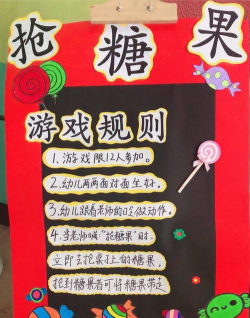 抢糖果
游戏规则
1、游戏限12人参加。
2、幼儿两两面对面坐好。
3、幼儿跟着老师的口令做动作。
4、当老师喊:“抢糖果”时,
立即去抢桌子上的糖果,
抢到糖果者可将糖果带走